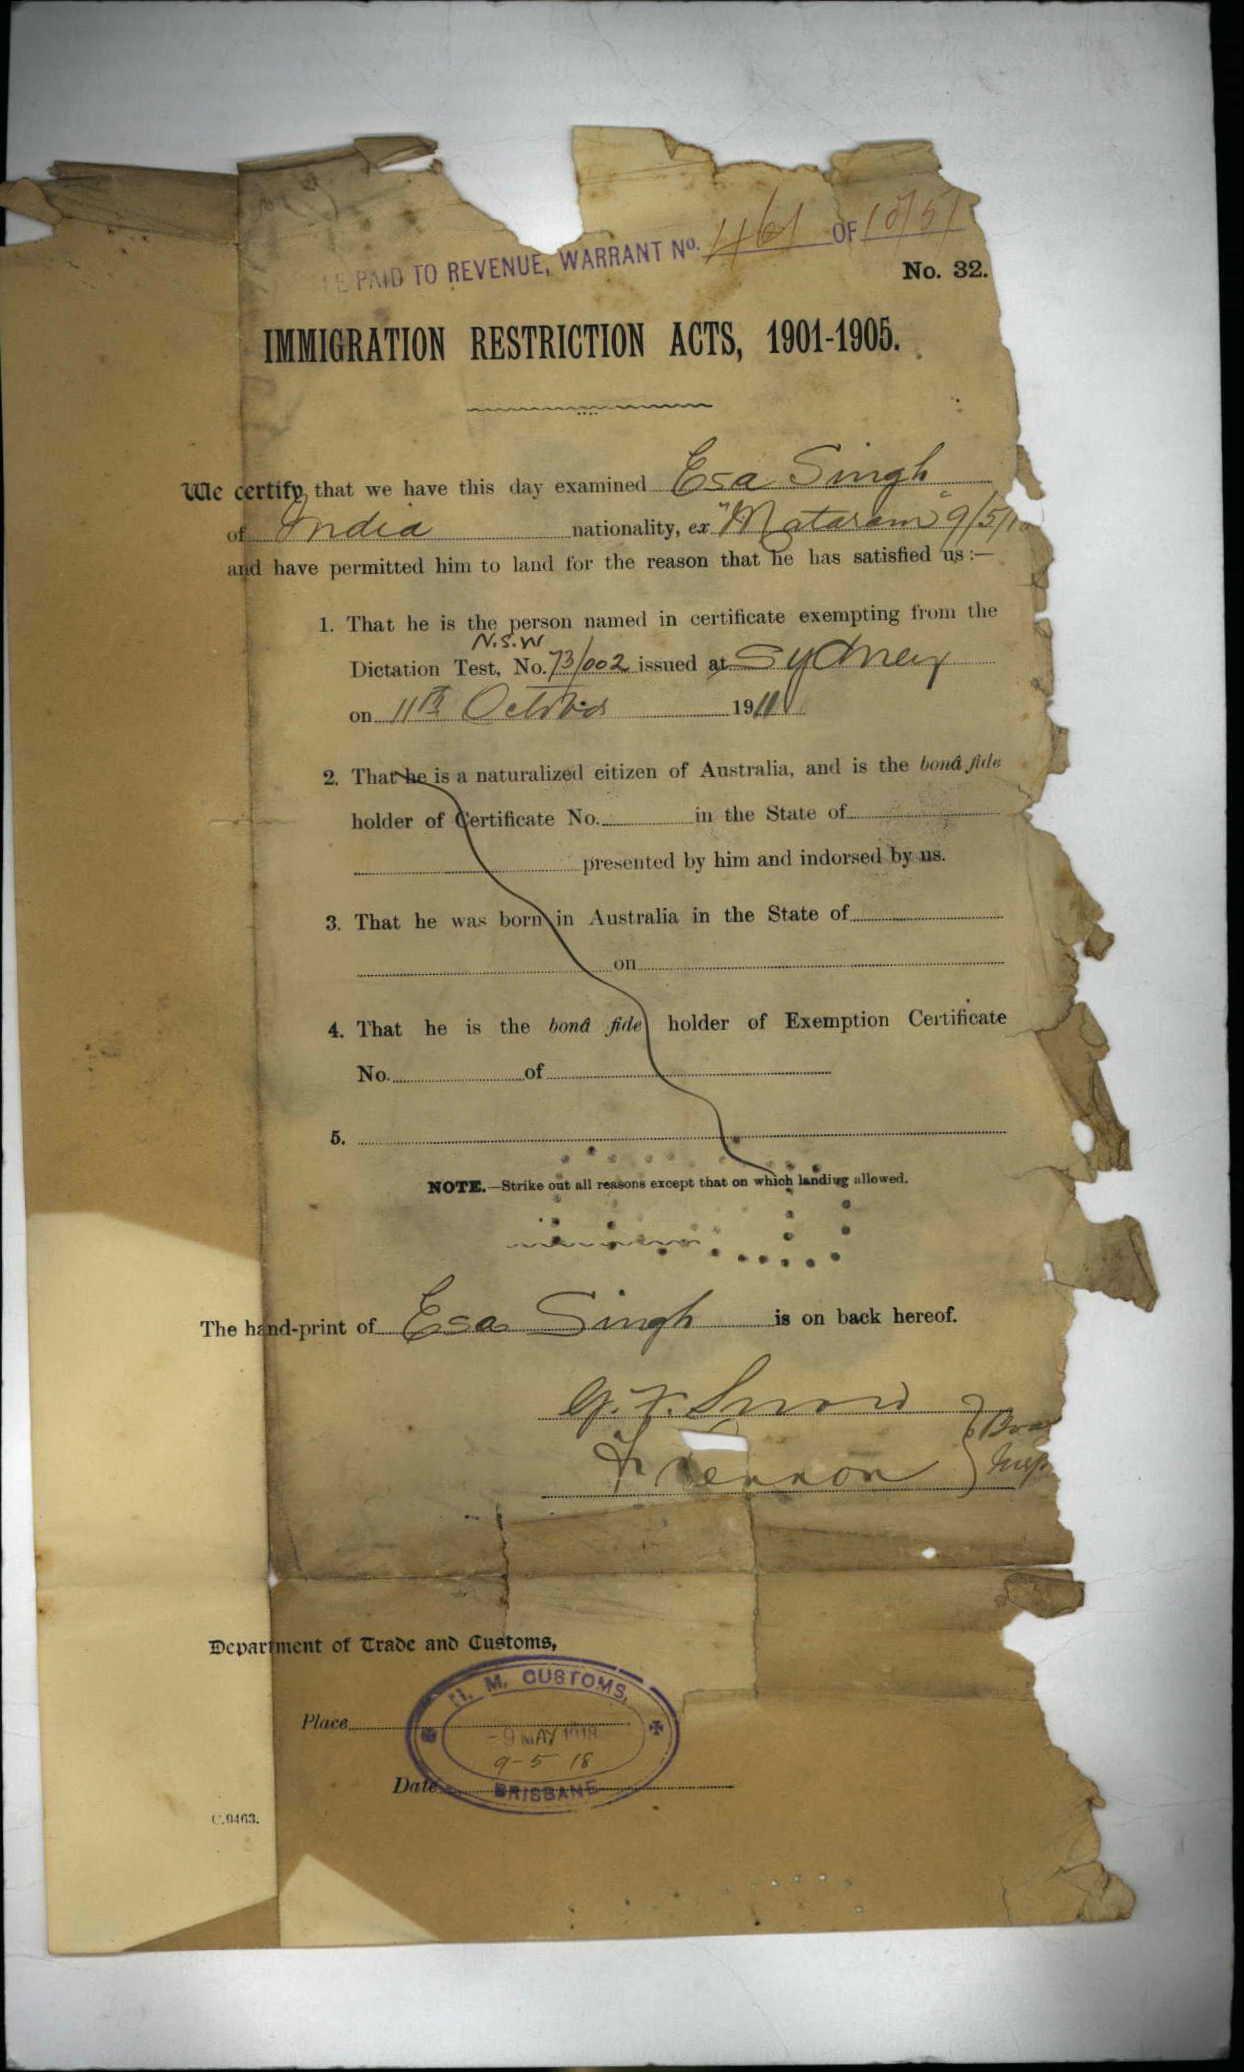 PAID TO REVENUE, WARRANT No. 1461 OF
No. 32.
IMMIGRATION RESTRICTION ACTS, 1901-1905.
We certify, that we have this day examined Esa Singh
of India nationality, ex "Mataram" 9/5/
and have permitted him to land for the reason that he has satisfied us :—
1. That he is the person named in certificate exempting from the
N.S.W
Dictation Test, No. 73/002 issued at Sydney
on 11th October 19
2. That he is a naturalized citizen of Australia, and is the bonâ fide
holder of Certificate No. in the State of
presented by him and indorsed by us.
3. That he was born in Australia in the State of
on
4. That he is the bonâ fide holder of Exemption Certificate
No. of
5.
NOTE.—Strike out all reasons except that on which landing allowed.
The hand-print of Esa Singh is on back hereof.
G. F. Snow
Lennon
Department of Trade and Customs,
H. M. CUSTOMS,
Place
-9 MAY 1918
9-5 18
Date
BRISBANE
C.9463.